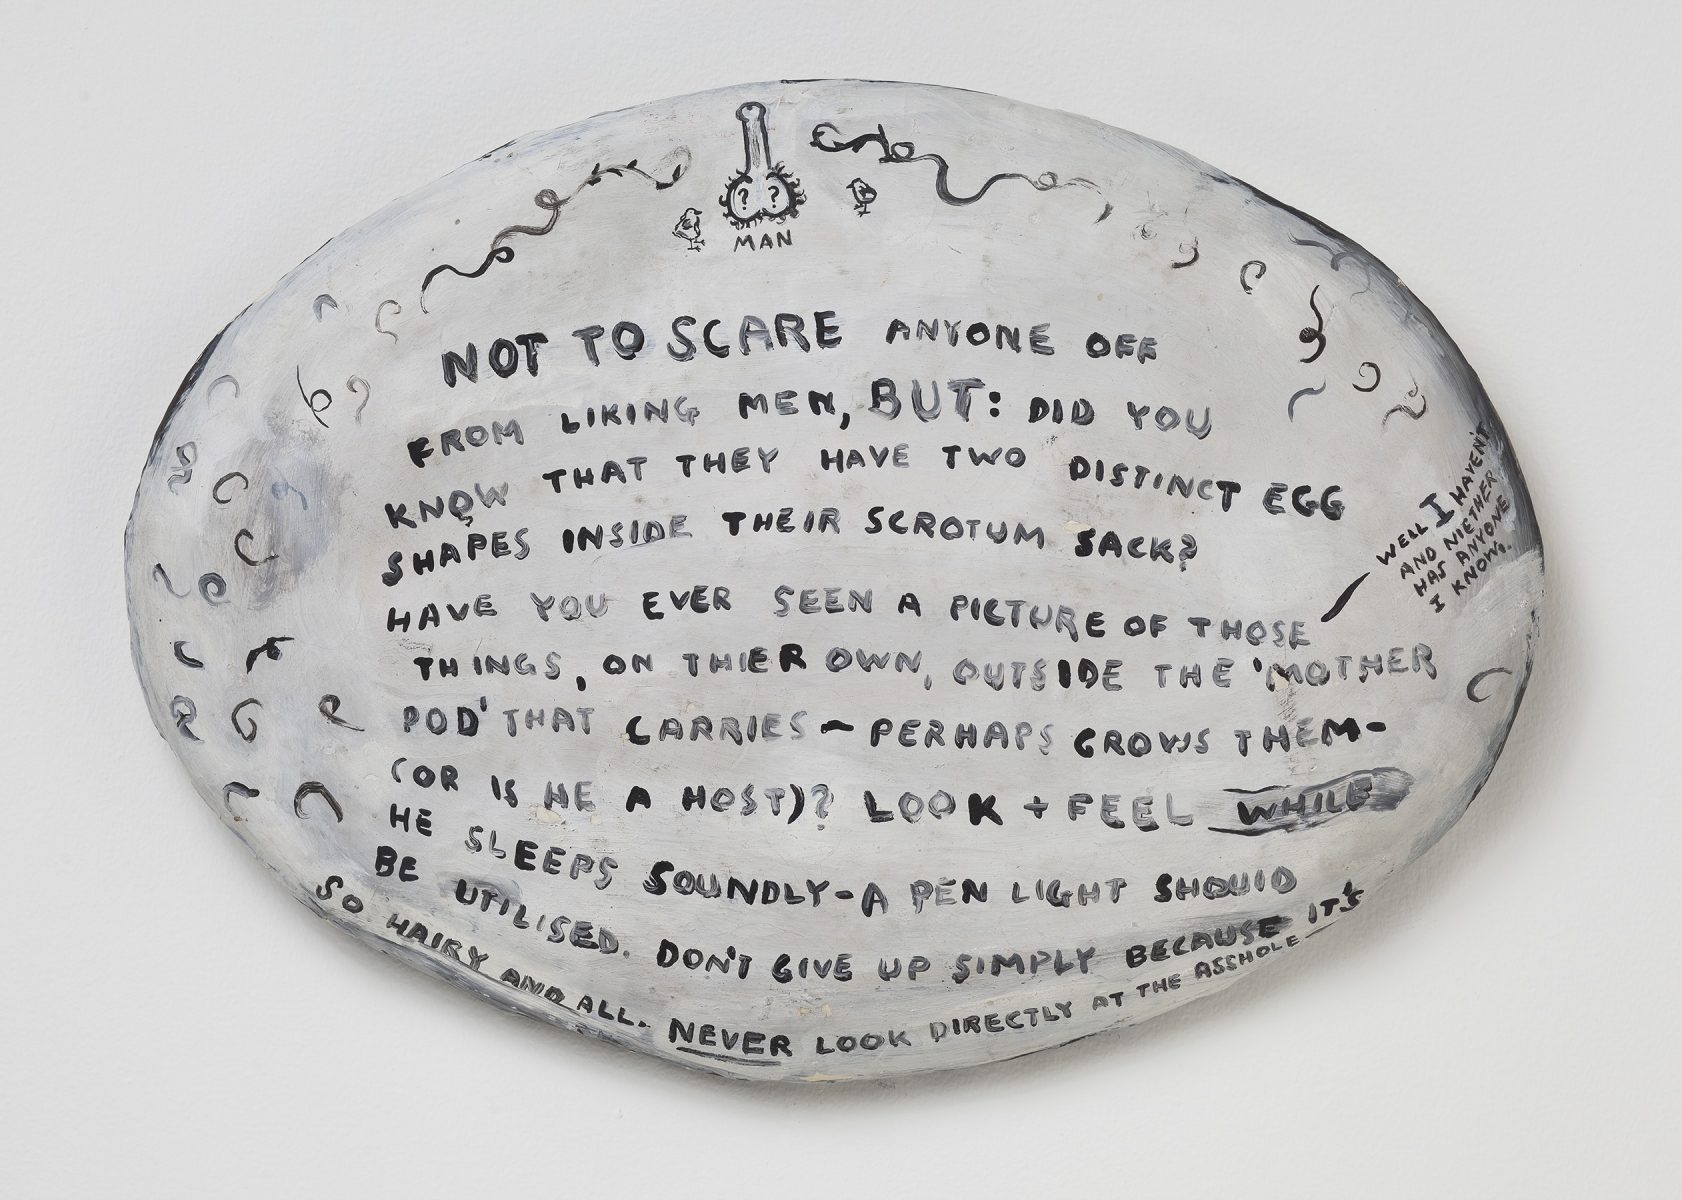 ? ?
MAN
NOT TO SCARE ANYONE OFF
FROM LIKING MEN, BUT: DID YOU
KNOW THAT THEY HAVE TWO DISTINCT EGG
SHAPES INSIDE THEIR SCROTUM SACK?
HAVE YOU EVER SEEN A PICTURE OF THOSE
THINGS, ON THIER OWN, OUTSIDE THE 'MOTHER
POD' THAT CARRIES - PERHAPS GROWS THEM-
(OR IS HE A HOST)? LOOK + FEEL WHILE
HE SLEEPS SOUNDLY-A PEN LIGHT SHOULD
BE UTILISED. DON'T GIVE UP SIMPLY BECAUSE IT'S
SO HAIRY AND ALL. NEVER LOOK DIRECTLY AT THE ASSHOLE
WELL I HAVEN'T
AND NIETHER
HAS ANYONE
I KNOW.